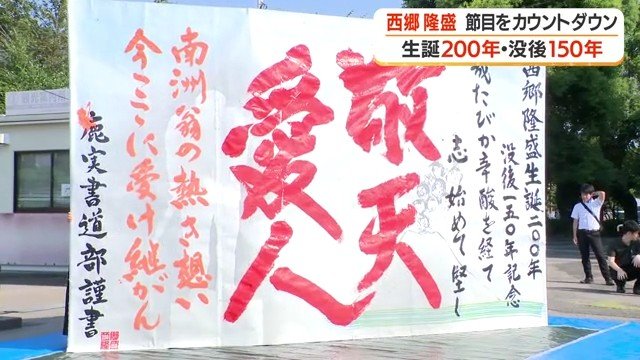 西郷 隆盛 節目をカウントダウン
生誕200年・没後150年
西郷隆盛生誕二〇〇年
没後一五〇年記念
幾たびか辛酸を経て
志 始めて堅し
敬天
愛人
南洲翁の熱き想い
今ここに受け継がん
鹿実書道部謹書